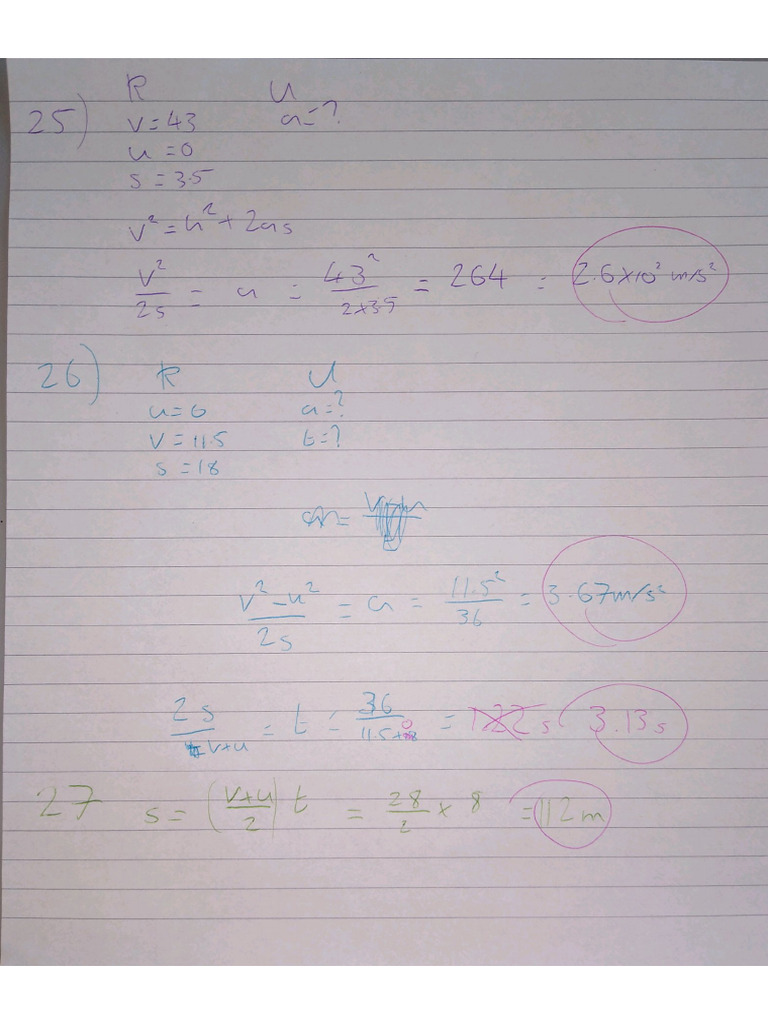 R U
25) v=43 a=?
u=0
s=3.5
v²=u²+2as
v²/2s = a = 43²/2×3.5 = 264 = 2.6×10² m/s²
26) R U
u=0 a=?
v=11.5 t=?
s=18
v²-u²/2s = a = 11.5²/36 = 3.67m/s²
2s/v+u = t = 36/11.5+0 = 3.13s
27 s= (v+u/2) t = 28/2 × 8 = 112m